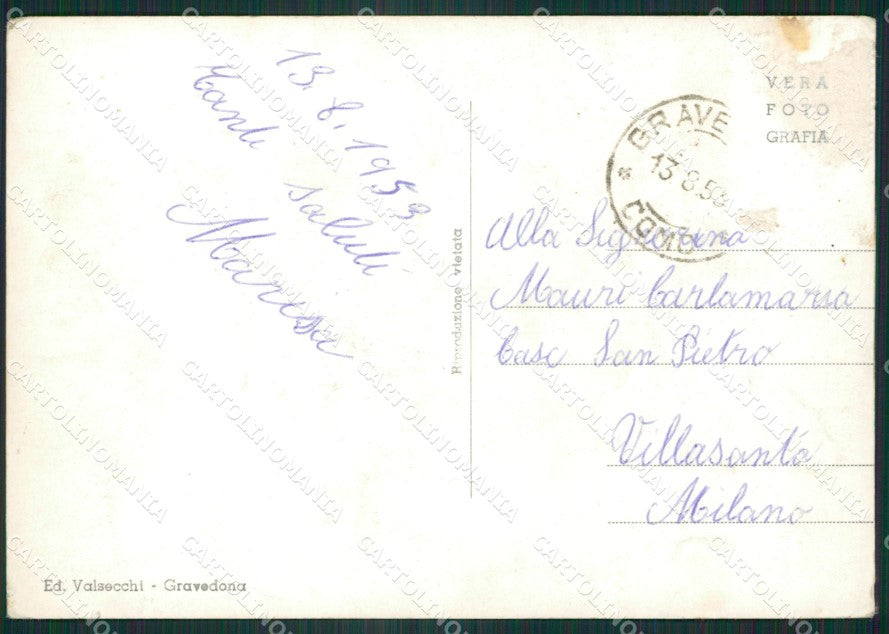 13.8.1953
Tanti saluti
Marisa
Riproduzione vietata
Ed. Valsecchi - Gravedona
GRAVE
13.8.53
COMO
VERA
FOTO
GRAFIA
Alla Signorina
Mauri Carlamarsa
Casc San Pietro
Villasanta
Milano
CARTOLINOMANIA